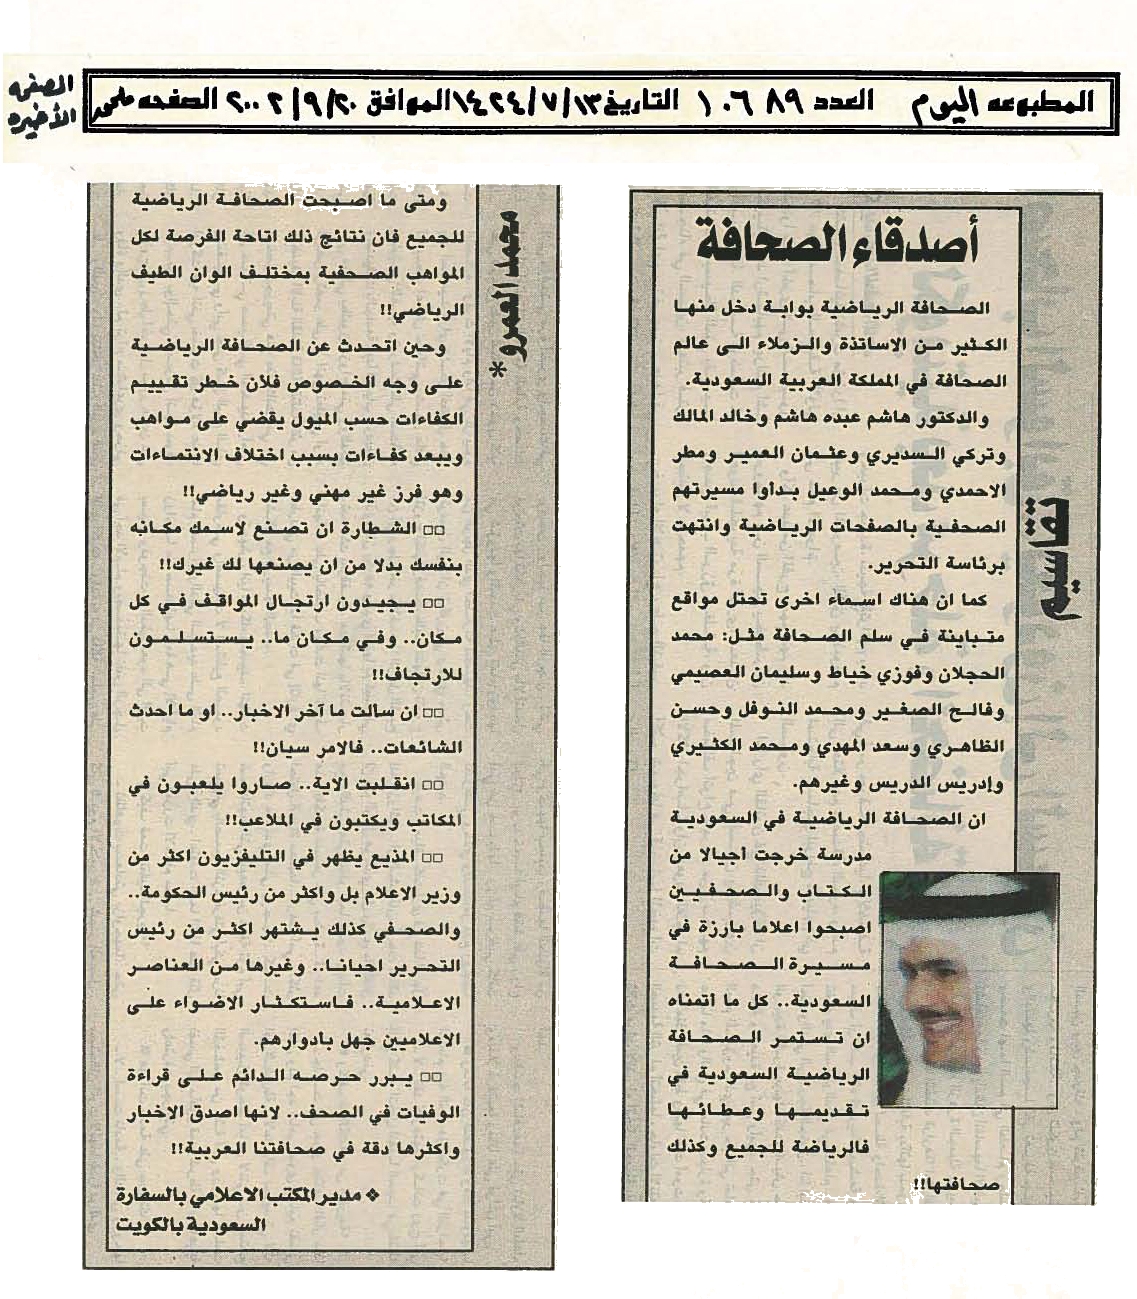 المطبوعه اليوم العدد ١٠٦٨٩ التاريخ ١٣/٧/١٤٢٤ الموافق ٢٠/٩/٢٠٠٢ الصفحه
الصفحه
الأخيره
أصدقاء الصحافة
تقاسيم
الصحافة الرياضية بوابة دخل منها
الكثير من الاساتذة والزملاء الى عالم
الصحافة في المملكة العربية السعودية.
والدكتور هاشم عبده هاشم وخالد المالك
وتركي السديري وعثمان العمير ومطر
الاحمدي ومحمد الوعيل بدأوا مسيرتهم
الصحفية بالصفحات الرياضية وانتهت
برئاسة التحرير.
كما ان هناك اسماء اخرى تحتل مواقع
متباينة في سلم الصحافة مثل: محمد
الحجلان وفوزي خياط وسليمان العصيمي
وفالح الصغير ومحمد النوفل وحسن
الظاهري وسعد المهدي ومحمد الكثيري
وإدريس الدريس وغيرهم.
ان الصحافة الرياضية في السعودية
مدرسة خرجت أجيالا من
الكتاب والصحفيين
اصبحوا اعلاما بارزة في
مسيرة الصحافة
السعودية.. كل ما أتمناه
ان تستمر الصحافة
الرياضية السعودية في
تقديمها وعطائها
فالرياضة للجميع وكذلك
صحافتها!!
محمد العمرو*
ومتى ما اصبحت الصحافة الرياضية
للجميع فان نتائج ذلك اتاحة الفرصة لكل
المواهب الصحفية بمختلف الوان الطيف
الرياضي!!
وحين اتحدث عن الصحافة الرياضية
على وجه الخصوص فلان خطر تقييم
الكفاءات حسب الميول يقضي على مواهب
ويبعد كفاءات بسبب اختلاف الانتماءات
وهو فرز غير مهني وغير رياضي!!
□□ الشطارة ان تصنع لاسمك مكانه
بنفسك بدلا من ان يصنعها لك غيرك!!
□□ يجيدون ارتجال المواقف في كل
مكان.. وفي مكان ما.. يستسلمون
للارتجاف!!
□□ ان سالت ما آخر الاخبار.. او ما احدث
الشائعات.. فالامر سيان!!
□□ انقلبت الاية.. صاروا يلعبون في
المكاتب ويكتبون في الملاعب!!
□□ المذيع يظهر في التليفزيون اكثر من
وزير الاعلام بل واكثر من رئيس الحكومة..
والصحفي كذلك يشتهر اكثر من رئيس
التحرير احيانا.. وغيرها من العناصر
الاعلامية.. فاستكثار الاضواء على
الاعلاميين جهل بأدوارهم.
□□ يبرر حرصه الدائم على قراءة
الوفيات في الصحف.. لانها اصدق الاخبار
واكثرها دقة في صحافتنا العربية!!
❖ مدير المكتب الاعلامي بالسفارة
السعودية بالكويت